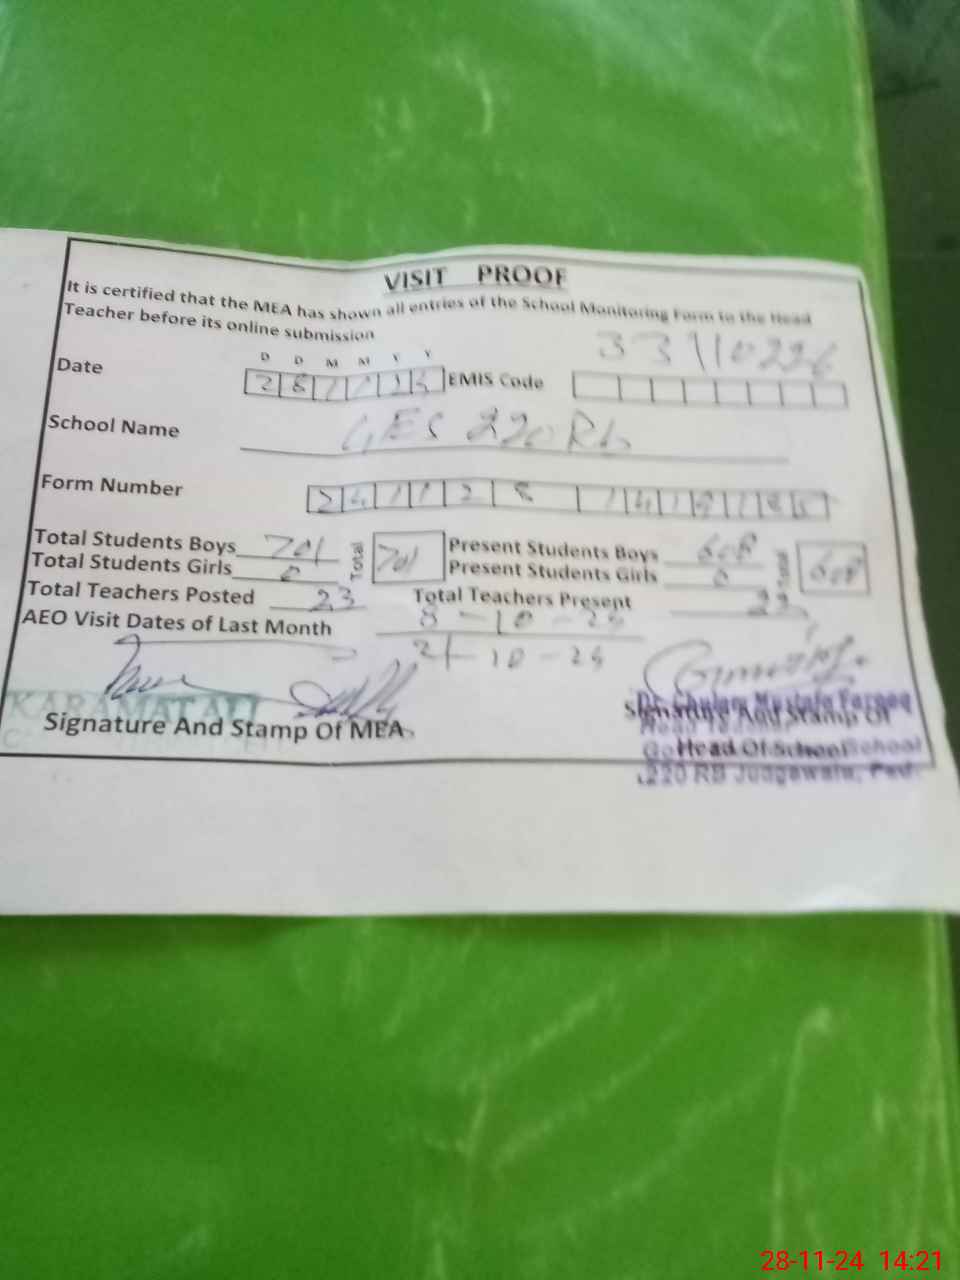 VISIT PROOF
It is certified that the MEA has shown all entries of the School Monitoring Form to the Head
Teacher before its online submission
D D M M Y Y
Date 28 11 24 EMIS Code 33110226
School Name GES 220 Rb
Form Number
Total Students Boys 701 Total 701 Present Students Boys 608 608
Total Students Girls 0 Present Students Girls 0
Total Teachers Posted 23 Total Teachers Present 22
AEO Visit Dates of Last Month 8-10-24
21-10-24
KARAMAT ALI
Signature And Stamp Of MEA
Dr. Ghulam Mustafa Farooq
Signature And Stamp Of
Head Teacher
Head Of School School
220 RB Judgewala, Fsd.
28-11-24 14:21